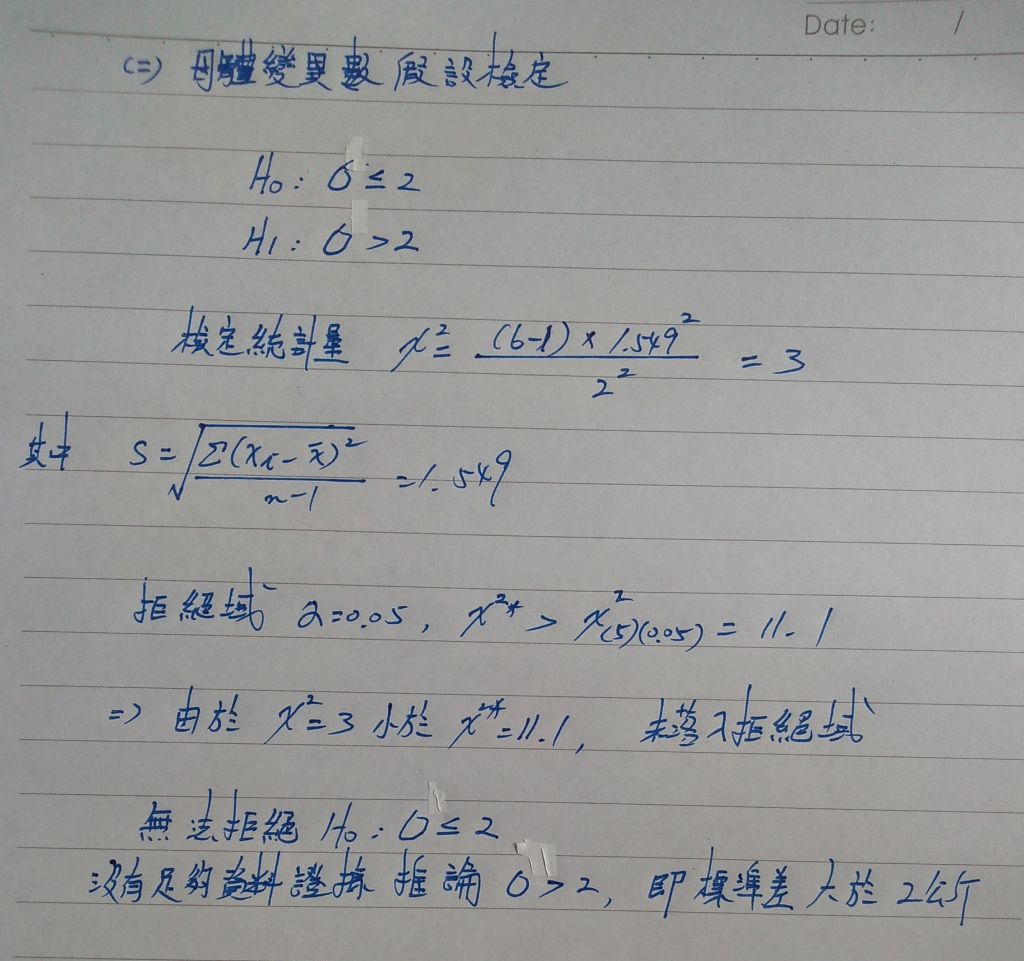 Date: /
(二) 母體變異數假設檢定
H0: σ ≤ 2
H1: σ > 2
檢定統計量 χ² = (6-1) × 1.549² / 2² = 3
其中 S = √(Σ(xi - x̄)² / n-1) = 1.549
拒絕域 α=0.05, χ²* > χ²(5)(0.05) = 11.1
=> 由於 χ²=3 小於 χ²*=11.1, 未落入拒絕域
無法拒絕 H0: σ ≤ 2
沒有足夠資料證據推論 σ > 2, 即標準差大於 2公斤